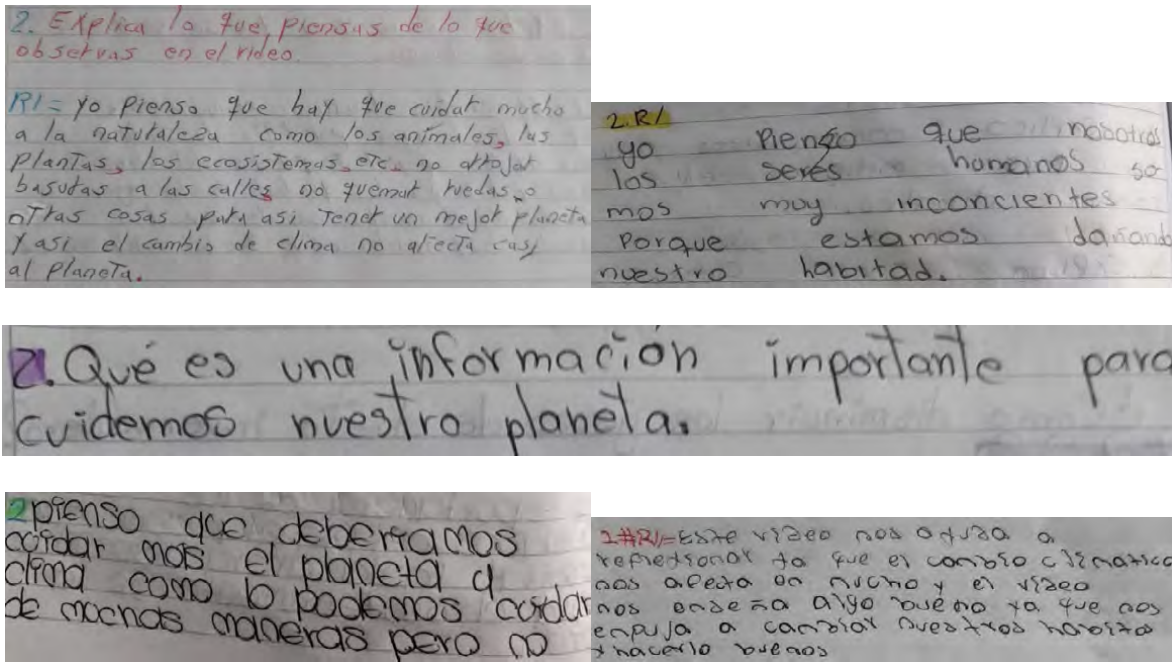 2. Explica lo que piensas de lo que
observas en el video.
R/= yo pienso que hay que cuidar mucho
a la naturaleza como los animales, las
plantas, los ecosistemas, etc. no arrojar
basuras a las calles no quemar ruedas o
otras cosas para asi Tener un mejor planeta
y asi el cambio de clima no afecta casy
al planeta.
2. R/
yo piengo que nosotros
los seres humanos so
mos muy inconcientes
porque estamos dañand
nuestro habitad.
2. Qué es una información importante para
cuidemos nuestro planeta.
2 pienso que deberíamos
cuidar mas el planeta
clima como lo podemos cuidar
de muchas maneras pero no
2#R/= Este video nos ayuda a
reflectionar ya que el cambio climatico
nos afecta en mucho y el video
nos enseña algo bueno ya que nos
empuja a cambiar nuestros habitos
y hacerlo buenos